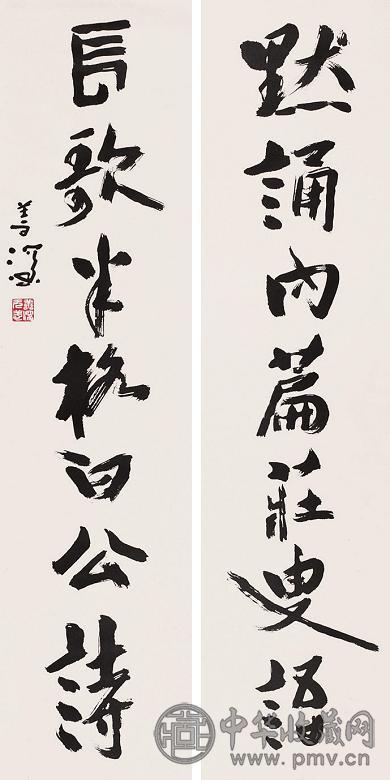 默誦內篇莊叟語
長歌半格白公詩
善深
中华收藏网
www.pmv.cn